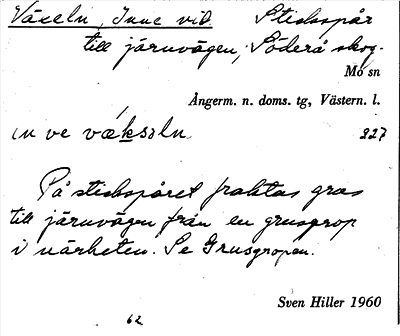 Växeln, Inne vid Stickspår
till järnvägen, Söderå skog.
Mo sn
Ångerm. n. doms. tg, Västern. l.
in ve väksaln 227
På stickspåret fraktas grus
till järnvägen från en grusgrop
i närheten. Se Grusgropen.
Sven Hiller 1960
62